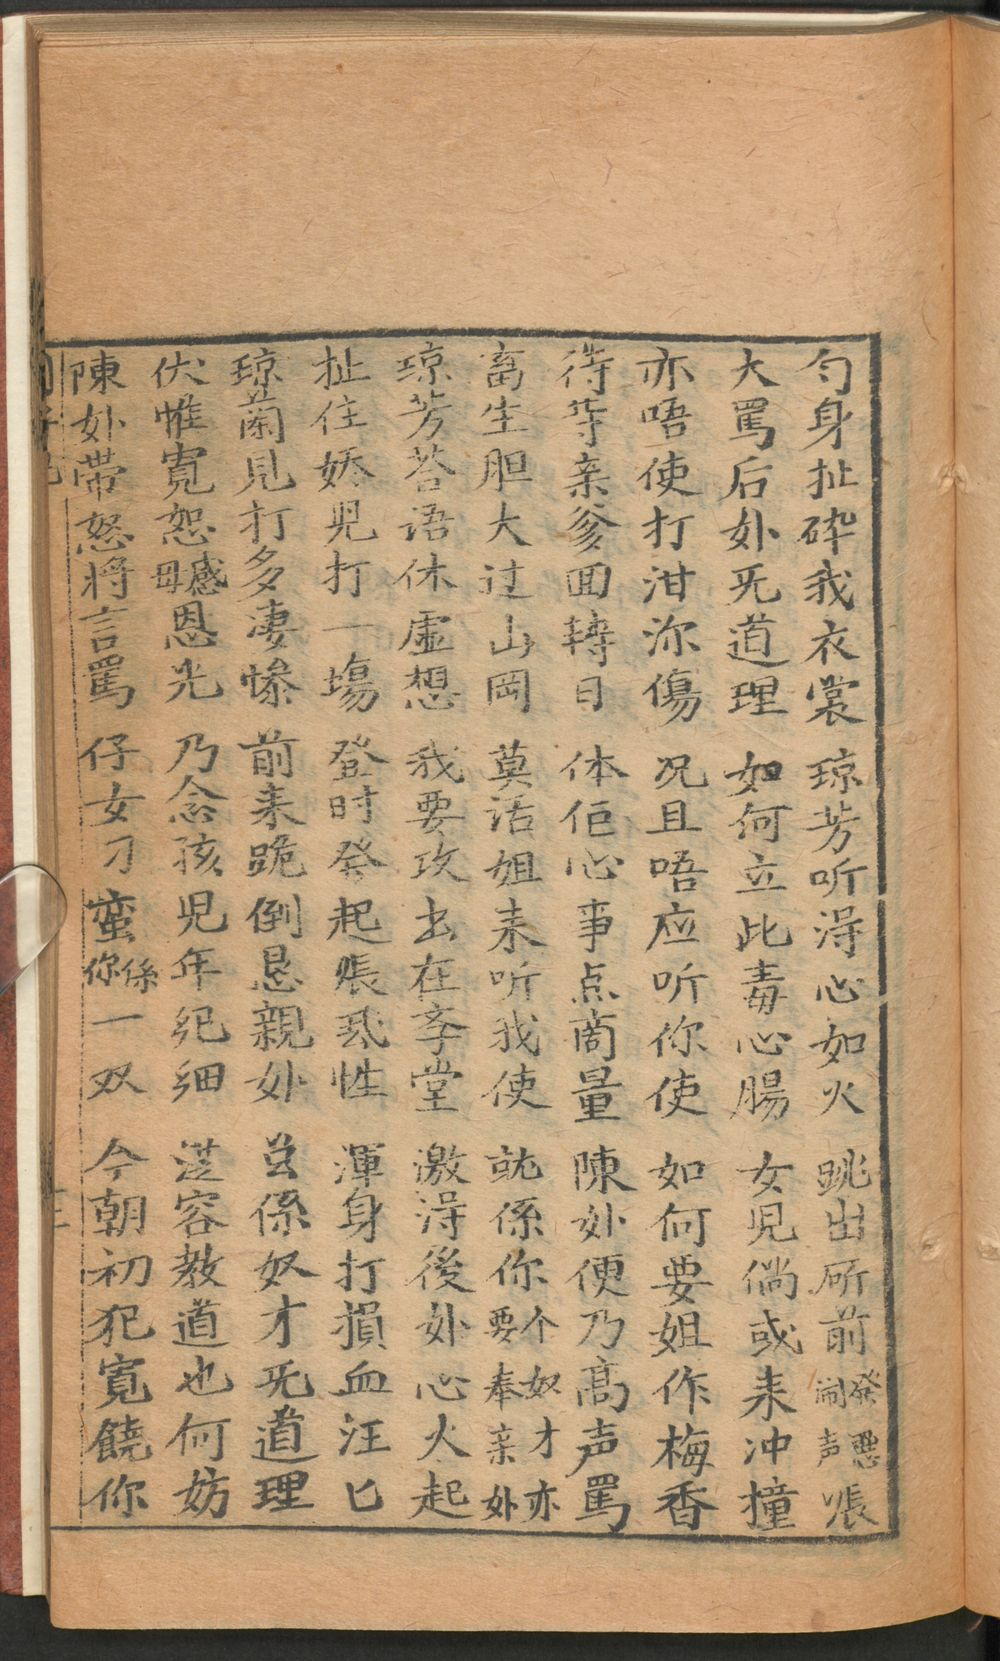 勻身扯碎我衣裳 琼芳听淂心如火 跳出所前發悪閙声張
大罵后外旡道理 如何立此毒心腸 女児倘或来冲撞
亦唔使打泔沵傷 况且唔应听你使 如何要姐作梅香
待等亲爹囬轉日 体佢心事点商量 陳外便乃髙声罵
畜生胆大过山岡 莫话姐来听我使 就係你个奴才亦要奉亲外
琼芳荅语休虚想 我要攻书在斈堂 激淂後外心火起
扯住娇児打一塲 登时發起悵 性 渾身打損血汪匕
琼蘭見打多凄惨 前来跪倒恳親外 总係奴才旡道理
伏惟寬恕感毋恩光 乃念孩児年纪细 從容教道也何妨
陳外带怒將言罵 仔女刁蛮係你一双 今朝初犯寬饒你